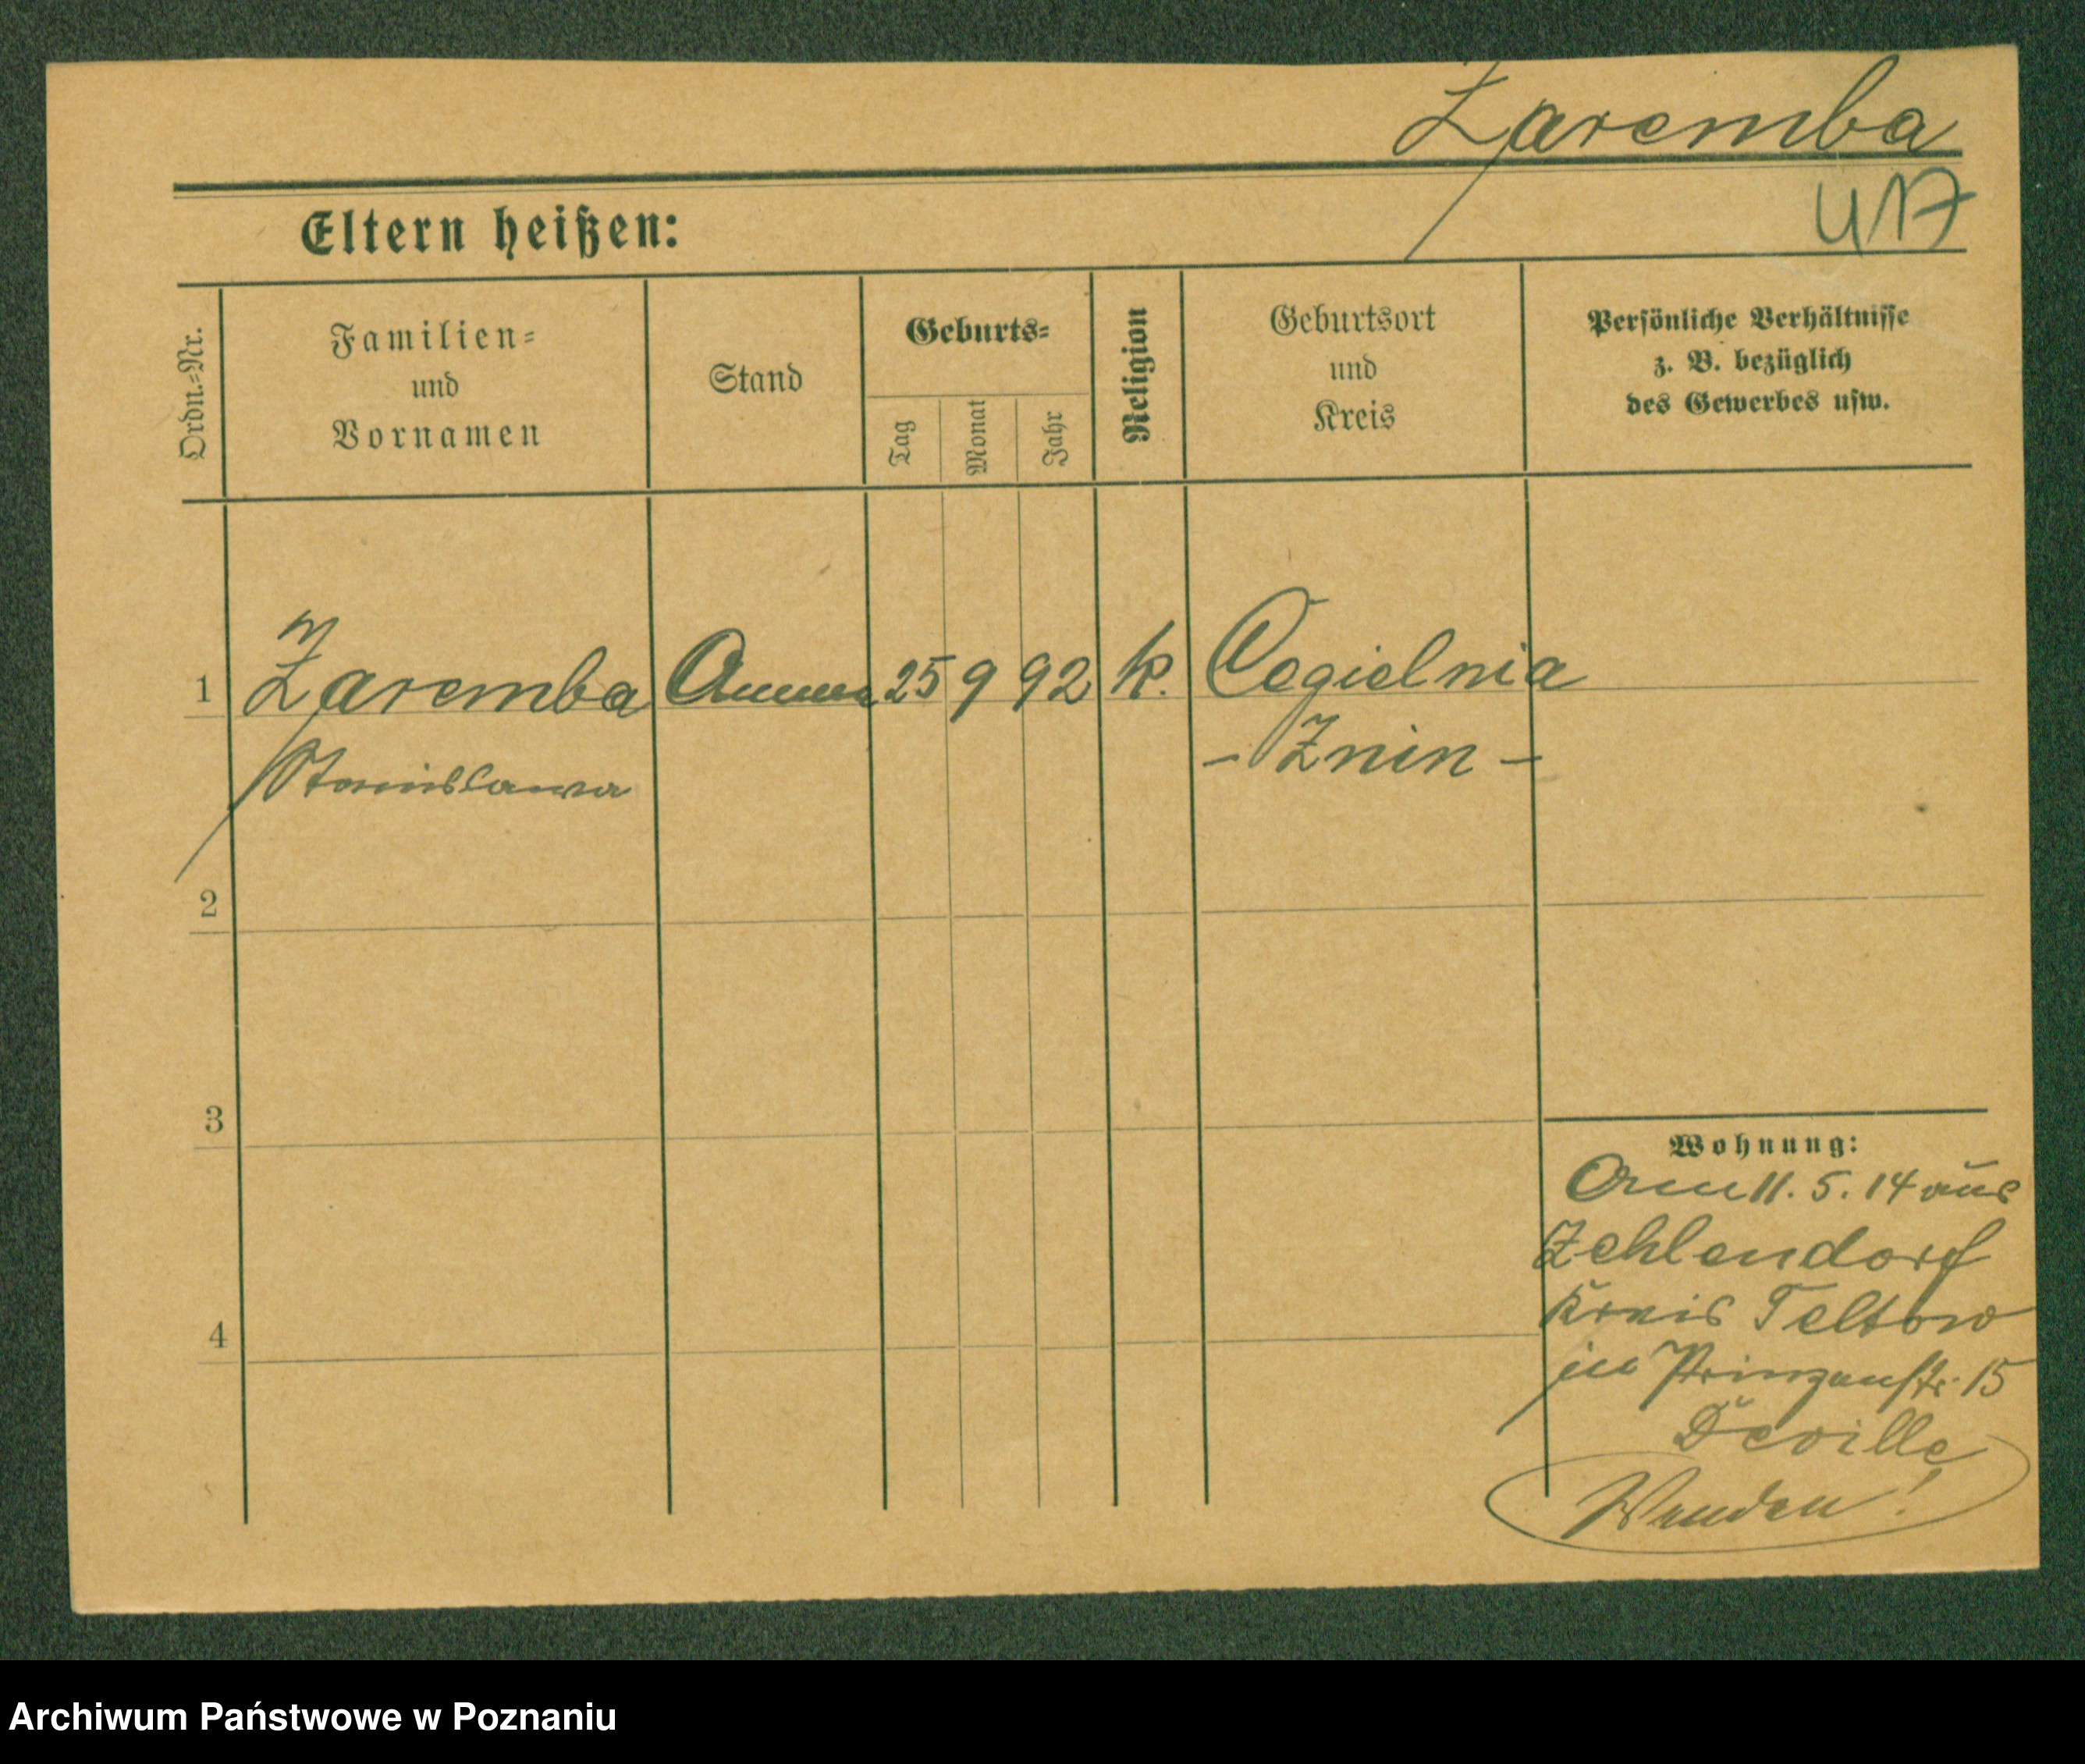 Zaremba
U17
Eltern heißen:
Ordn.-Nr.
Familien-
und
Vornamen
Stand
Geburts-
Tag
Monat
Jahr
Religion
Geburtsort
und
Kreis
Persönliche Verhältnisse
z. B. bezüglich
des Gewerbes usw.
1 Zaremba Amme 25 9 92 k. Cegielnia
Stanislawa - Znin -
2
3
4
Wohnung:
Am 11. 5. 14 aus
Zehlendorf
Kreis Teltow
in Prinzenstr. 15
Deville
Wenden!
Archiwum Państwowe w Poznaniu